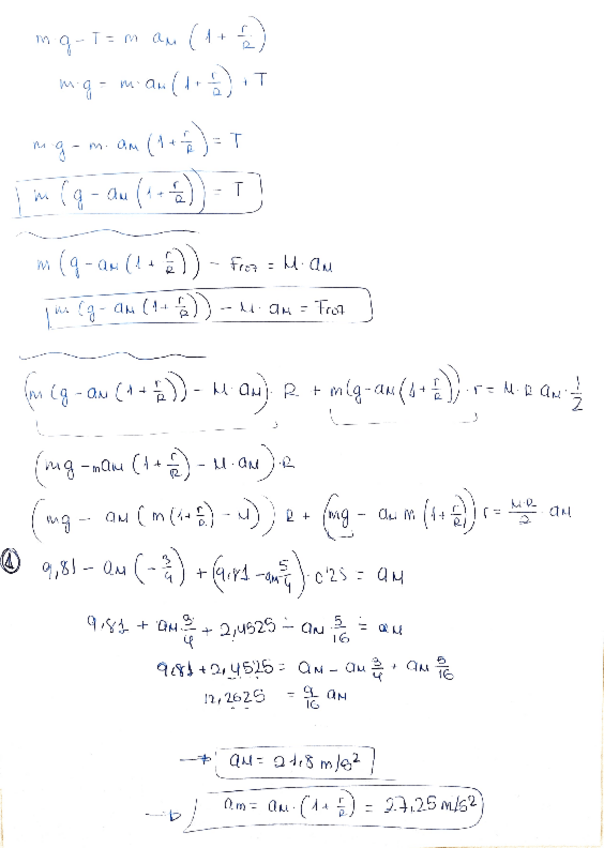 m g - T = m a_M (1 + r/R)
m·g = m·a_M (1 + r/R) + T
m·g - m·a_M (1 + r/R) = T
m (g - a_M (1 + r/R)) = T
m (g - a_M (1 + r/R)) - Froz = M·a_M
m (g - a_M (1 + r/R)) - M·a_M = Froz
(m (g - a_M (1 + r/R)) - M·a_M)·R + m(g - a_M (1 + r/R))·r = M·R a_M·1/2
(mg - m a_M (1 + r/R) - M·a_M)·R
(mg - a_M (m (1 + r/R) - M)) R + (mg - a_M m (1 + r/R)) r = M·R/2 a_M
① 9,81 - a_M (-3/4) + (9,81 - a_M 5/4)·0'25 = a_M
9,81 + a_M 3/4 + 2,4525 - a_M 5/16 = a_M
9,81 + 2,4525 = a_M - a_M 3/4 + a_M 5/16
12,2625 = 9/16 a_M
→ a_M = 21,8 m/s²
→ a_m = a_M·(1 + r/R) = 27,25 m/s²